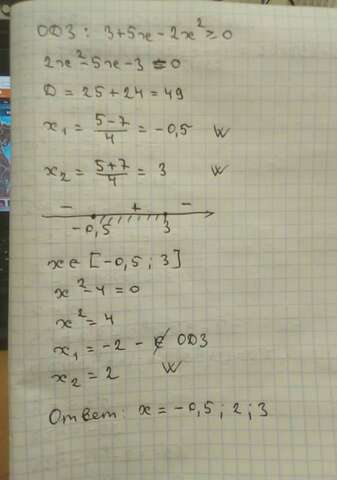 ОДЗ: 3+5x-2x²≥0
2x²-5x-3=0
D=25+24=49
x₁=(5-7)/4=-0,5 W
x₂=(5+7)/4=3 W
- + -
-0,5 3
x∈[-0,5;3]
x²-4=0
x²=4
x₁=-2-∉ ОДЗ
x₂=2 W
Ответ: x=-0,5;2;3